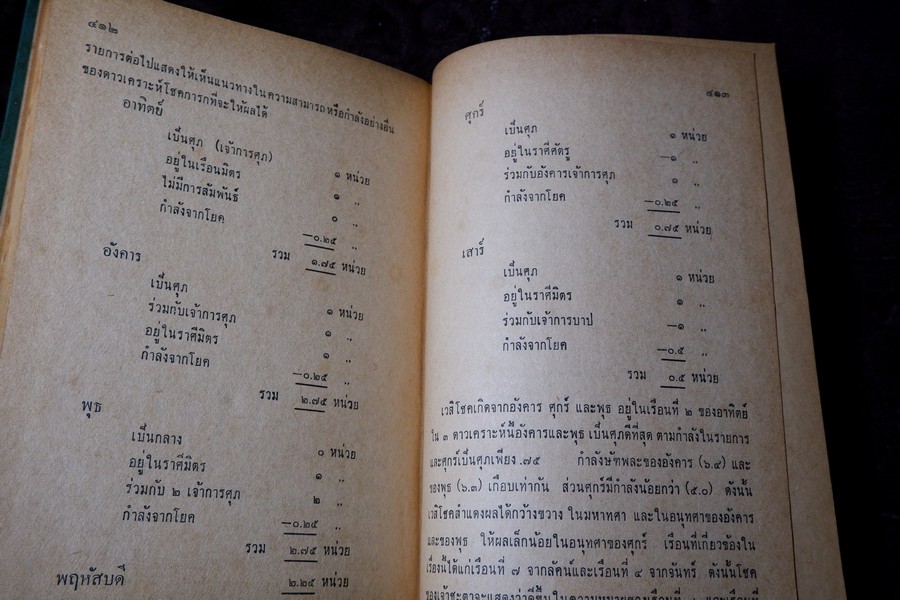 ๔๑๒
รายการต่อไปแสดงให้เห็นแนวทางในความสามารถหรือกำลังอย่างอื่น
ของดาวเคราะห์โชคการกที่จะให้ผลได้
อาทิตย์
เป็นศุภ (เจ้าการศุภ) ๑ หน่วย
อยู่ในเรือนมิตร ๑ ,,
ไม่มีการสัมพันธ์ ๐ ,,
กำลังจากโยค —๐.๒๕ ,,
รวม ๑.๗๕ หน่วย
อังคาร
เป็นศุภ ๑ หน่วย
ร่วมกับเจ้าการศุภ ๑ ,,
อยู่ในราศีมิตร ๑ ,,
กำลังจากโยค —๐.๒๕ ,,
รวม ๒.๗๕ หน่วย
พุธ
เป็นกลาง ๐ หน่วย
อยู่ในราศีมิตร ๑ ,,
ร่วมกับ ๒ เจ้าการศุภ ๒ ,,
กำลังจากโยค —๐.๒๕ ,,
รวม ๒.๗๕ หน่วย
พฤหัสบดี ๒.๒๕ หน่วย
๔๑๓
ศุกร์
เป็นศุภ ๑ หน่วย
อยู่ในราศีศัตรู —๑ ,,
ร่วมกับอังคารเจ้าการศุภ ๑ ,,
กำลังจากโยค —๐.๒๕ ,,
รวม ๐.๗๕ หน่วย
เสาร์
เป็นศุภ ๑ หน่วย
อยู่ในราศีมิตร ๑ ,,
ร่วมกับเจ้าการบาป —๑ ,,
กำลังจากโยค —๐.๕ ,,
รวม ๐.๕ หน่วย
เวสิโชคเกิดจากอังคาร ศุกร์ และพุธ อยู่ในเรือนที่ ๒ ของอาทิตย์
ใน ๓ ดาวเคราะห์นี้อังคารและพุธ เป็นศุภดีที่สุด ตามกำลังในรายการ
และศุกร์เป็นศุภเพียง .๗๕ กำลังษัทพละของอังคาร (๖.๔) และ
ของพุธ (๖.๓) เกือบเท่ากัน ส่วนศุกร์มีกำลังน้อยกว่า (๕.๐) ดังนั้น
เวสิโชคสำแดงผลได้กว้างขวาง ในมหาทศา และในอนุทศาของอังคาร
และของพุธ ให้ผลเล็กน้อยในอนุทศาของศุกร์ เรือนที่เกี่ยวข้องใน
เรื่องนี้ได้แก่เรือนที่ ๗ จากลัคน์และเรือนที่ ๔ จากจันทร์ ดังนั้นโชค
ของเจ้าชะตาจะแสดงว่าดีขึ้นในความหมายของเรือนที่